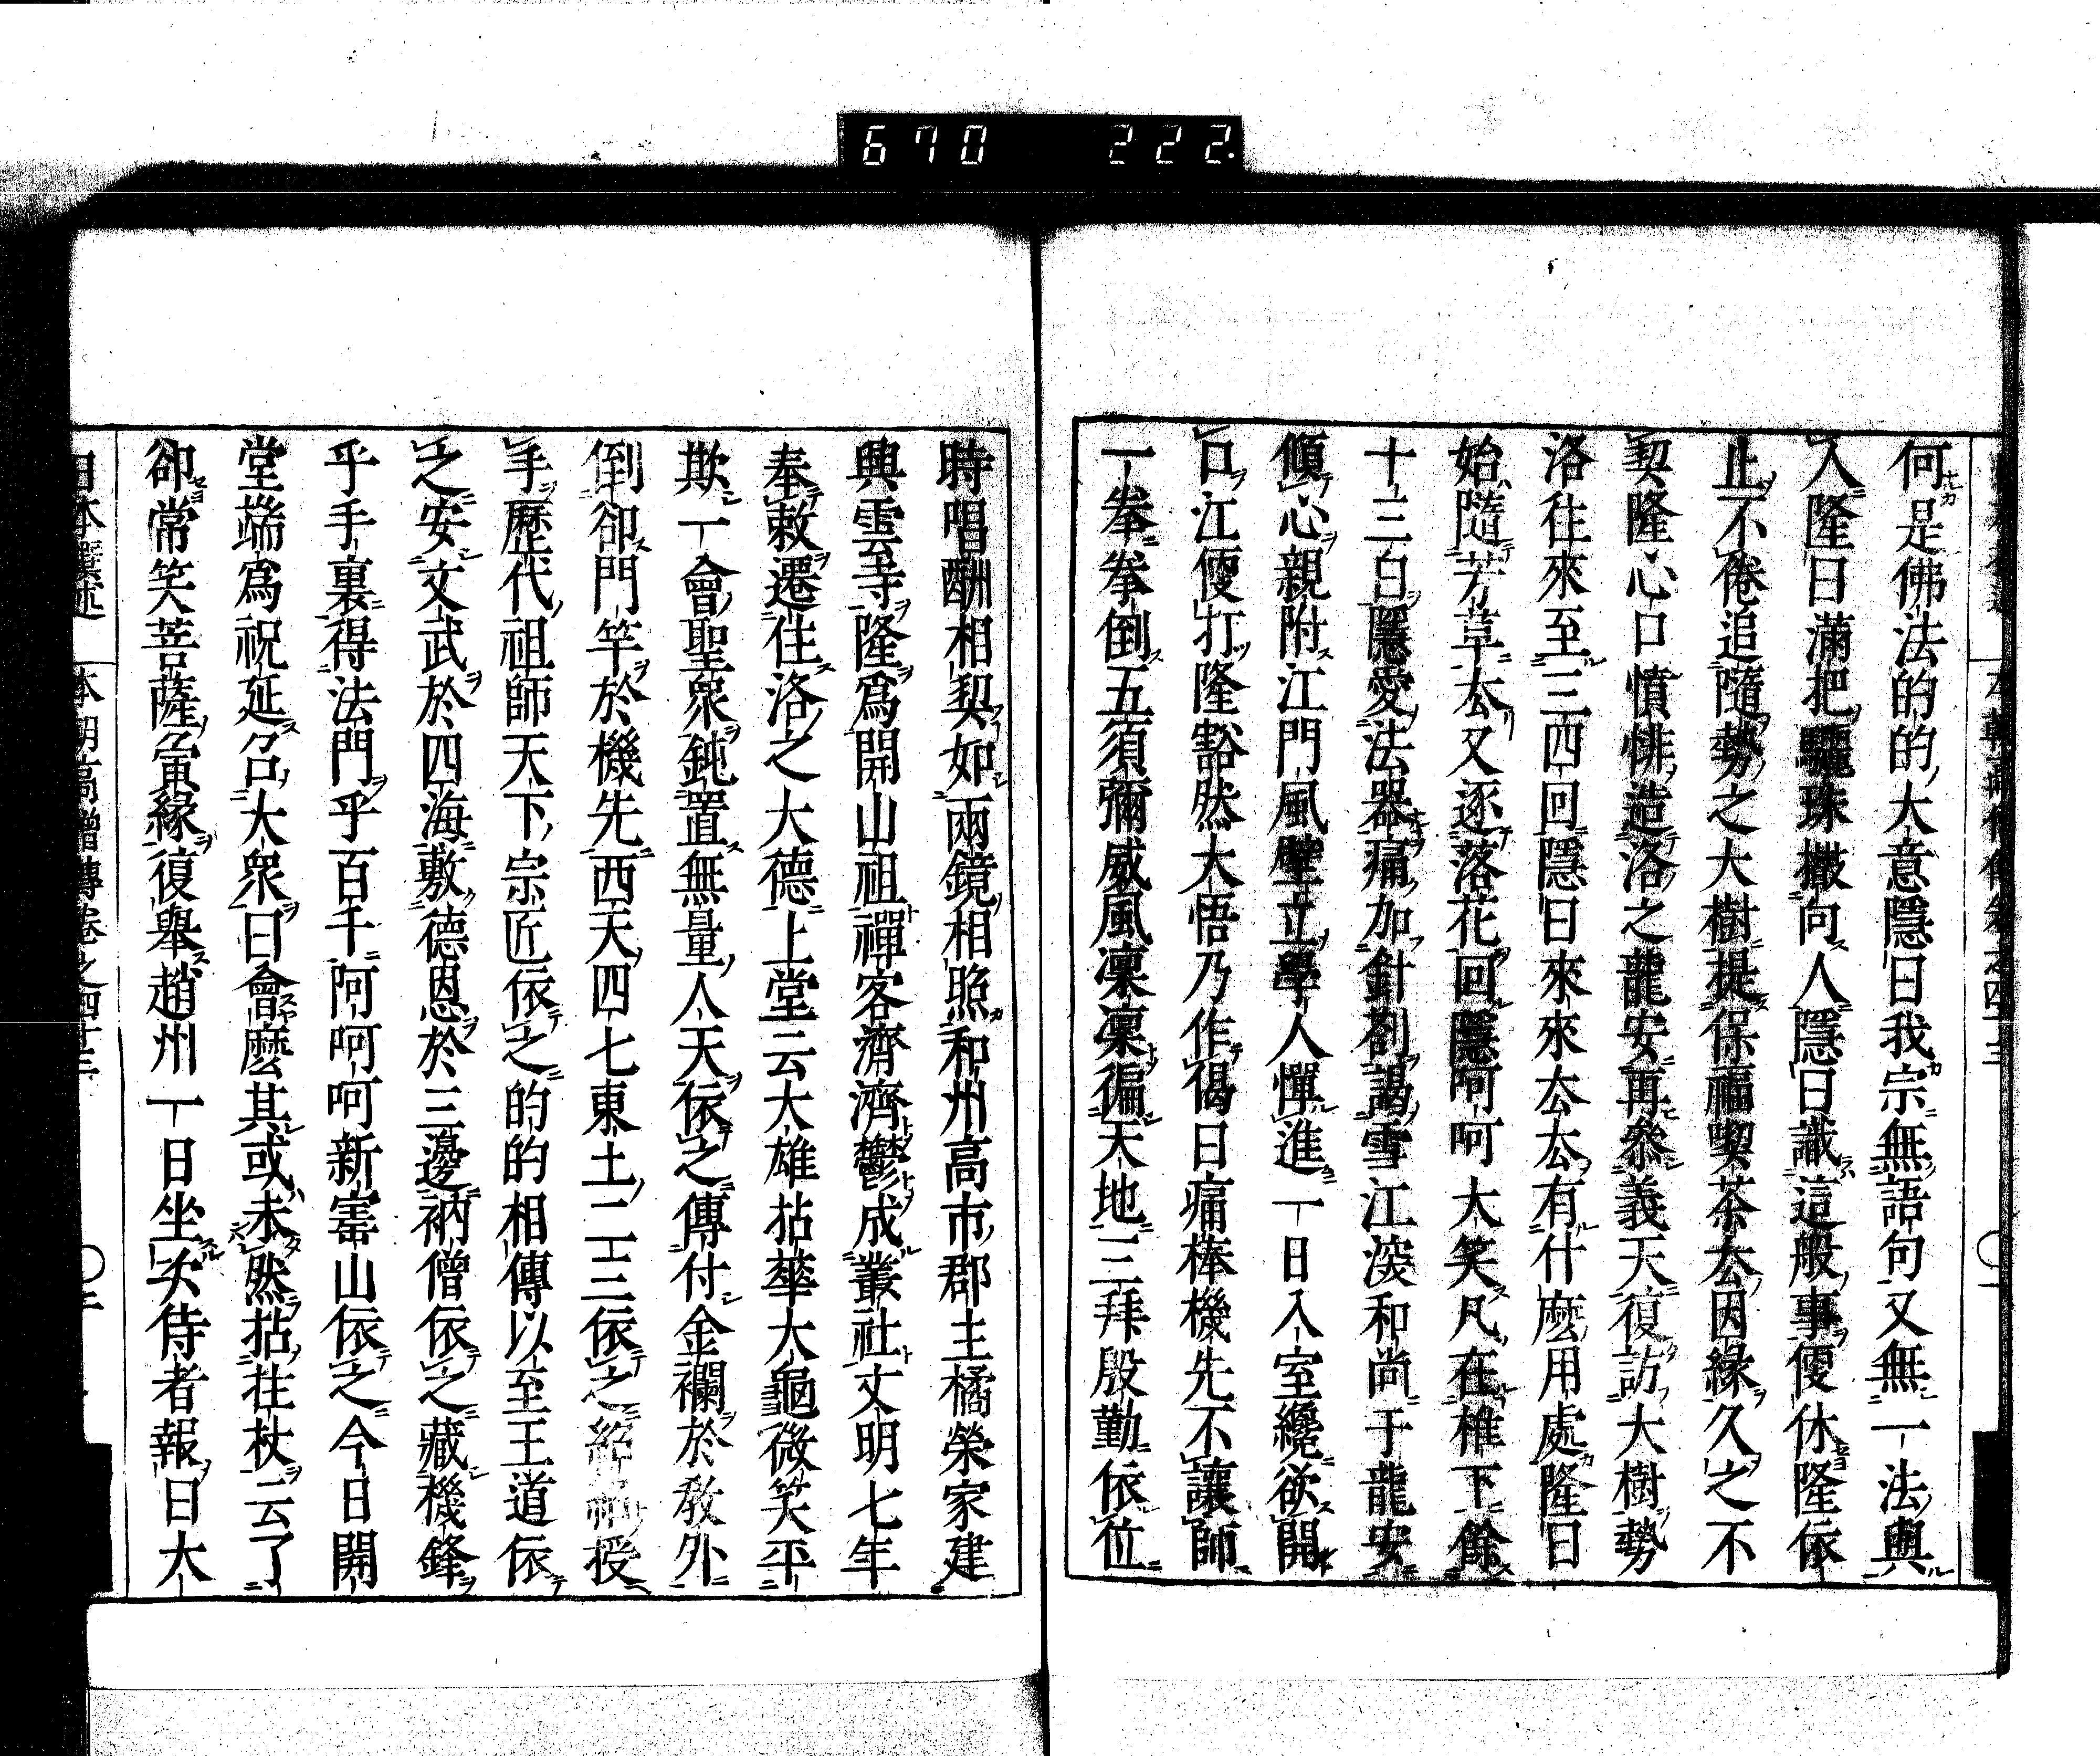 670 222.
何是佛法的的大意隱曰我宗無語句又無一法與
人隆曰滿把驪珠撒向人隱曰識這般事便休隆依
止不倦追隨勢之大樹提保福喫茶去因緣久之不
契隆心口憤悱造洛之龍安再參義天復訪大樹勢
洛往來至三四回隱曰來來去去有什麽用處隆曰
始隨芳草去又逐落花回隱呵呵大笑凡在椎下餘
十三白隱愛法器痛加針劄謁雪江深和尚于龍安
傾心親附江門風壁立學人憚進一日入室纔欲開
口江便打隆豁然大悟乃作偈曰痛棒機先不讓師
一拳拳倒五須彌威風凜凜徧天地三拜殷勤依位
時唱酬相契如兩鏡相照和州高市郡主橘榮家建
興雲寺隆爲開山祖禪客濟濟鬱成叢社文明七年
奉敕遷住洛之大德上堂云大雄拈華大龜微笑平
欺一會聖衆鈍置無量人天依之傳付金襴於教外
倒卻門竿於機先西天四七東土二三依之授
手歷代祖師天下宗匠依之的的相傳以至王道依
之安文武於四海敷德恩於三邊衲僧依之藏機鋒
乎手裏得法門乎百千阿呵呵新寗山依之今日開
堂端爲祝延召大衆曰會麽其或未然拈拄杖云了
卻常笑菩薩夤緣復舉趙州一日坐次侍者報曰大
日本撰述 本朝高僧傳卷之四十三 〇二